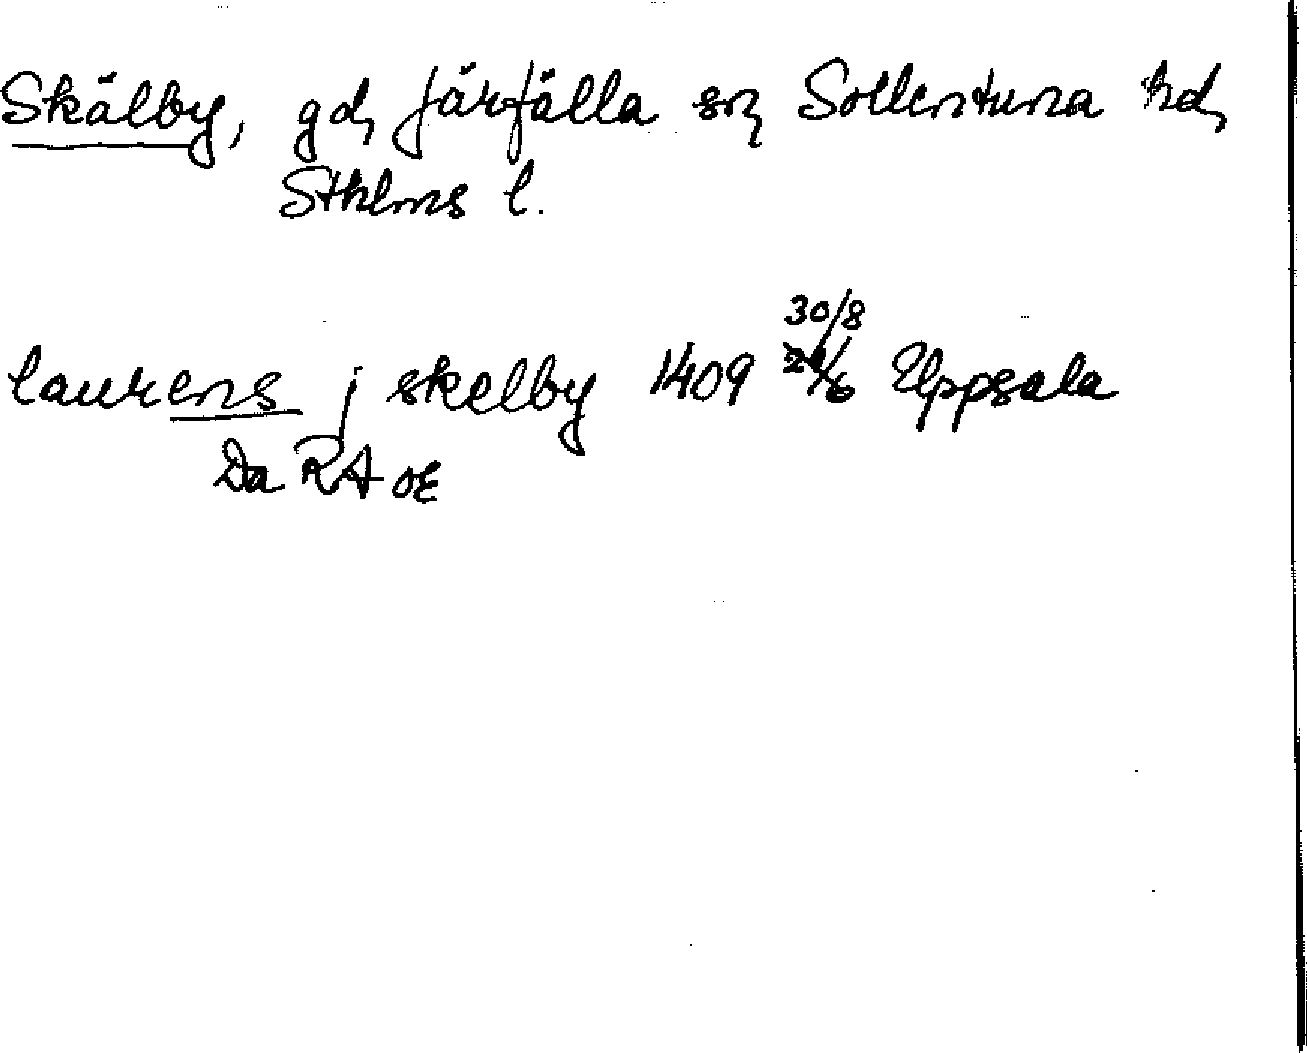 Skälby, gd, Järfälla sn, Sollentuna hd,
Sthlms l.
30/8
laurens j skelby 1409 Uppsala
Da RA oE